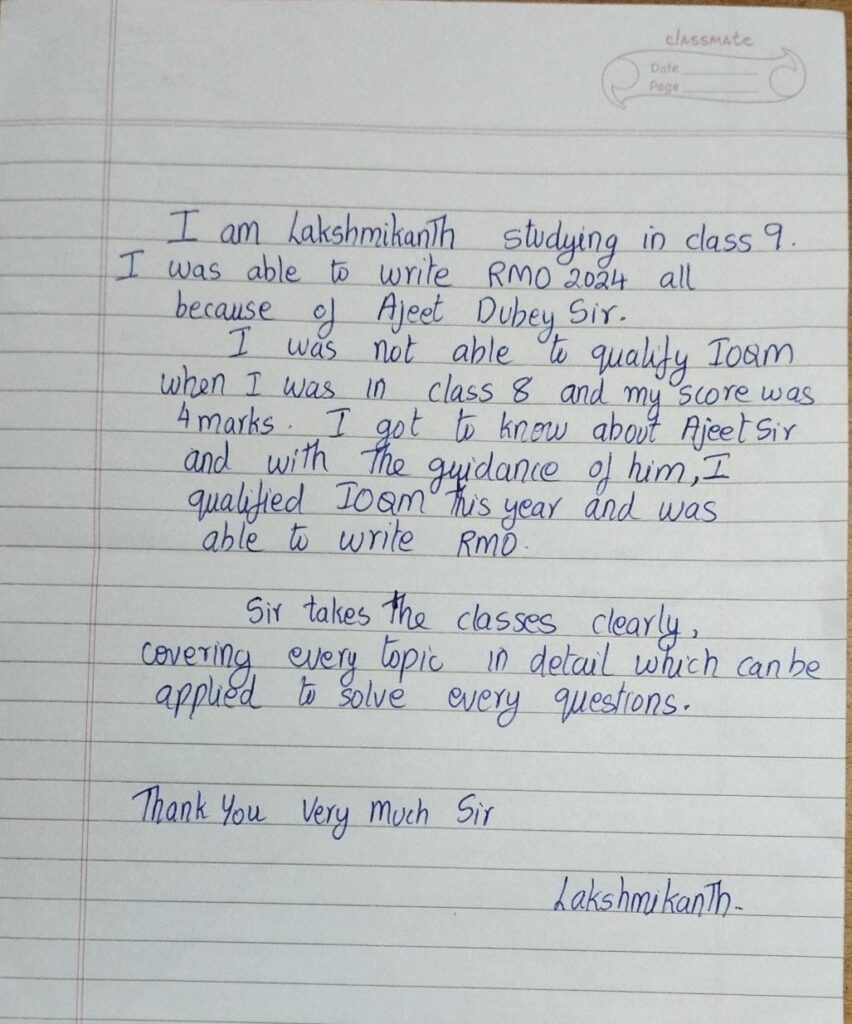 classmate
Date
Page
I am Lakshmikanth studying in class 9.
I was able to write RMO 2024 all
because of Ajeet Dubey Sir.
I was not able to qualify IOQM
when I was in class 8 and my score was
4 marks. I got to know about Ajeet Sir
and with the guidance of him, I
qualified IOQM this year and was
able to write RMO.
Sir takes the classes clearly,
covering every topic in detail which can be
applied to solve every questions.
Thank You Very Much Sir
Lakshmikanth-